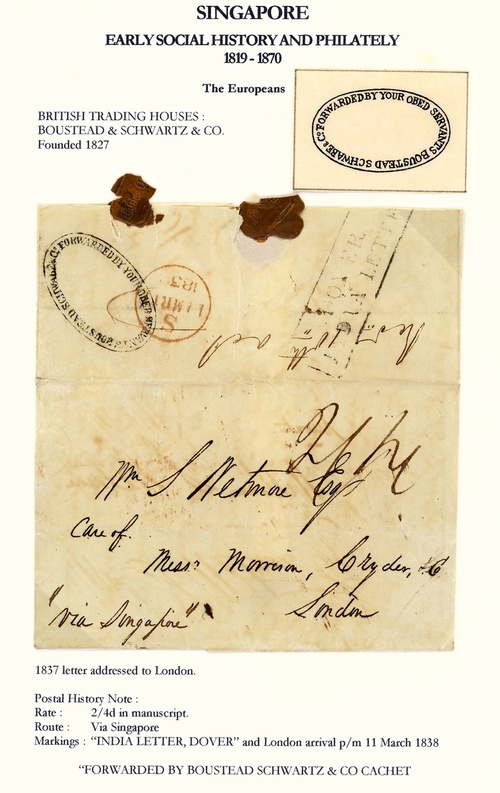 SINGAPORE
EARLY SOCIAL HISTORY AND PHILATELY
1819 - 1870
The Europeans
BRITISH TRADING HOUSES :
BOUSTEAD & SCHWARTZ & CO.
Founded 1827
FORWARDED BY YOUR OBED SERVANTS BOUSTEAD SCHWABE & Co
FORWARDED BY YOUR OBED SERVANTS BOUSTEAD SCHWABE & Co
S
11 MR 11
183
DOVER
INDIA LETTER
2/4
Wm S. Wetmore Esqr
Care of.
Messrs Morrison, Cryder, & Co
London
"via Singapore"
1837 letter addressed to London.
Postal History Note :
Rate : 2/4d in manuscript.
Route : Via Singapore
Markings : "INDIA LETTER, DOVER" and London arrival p/m 11 March 1838
"FORWARDED BY BOUSTEAD SCHWARTZ & CO CACHET